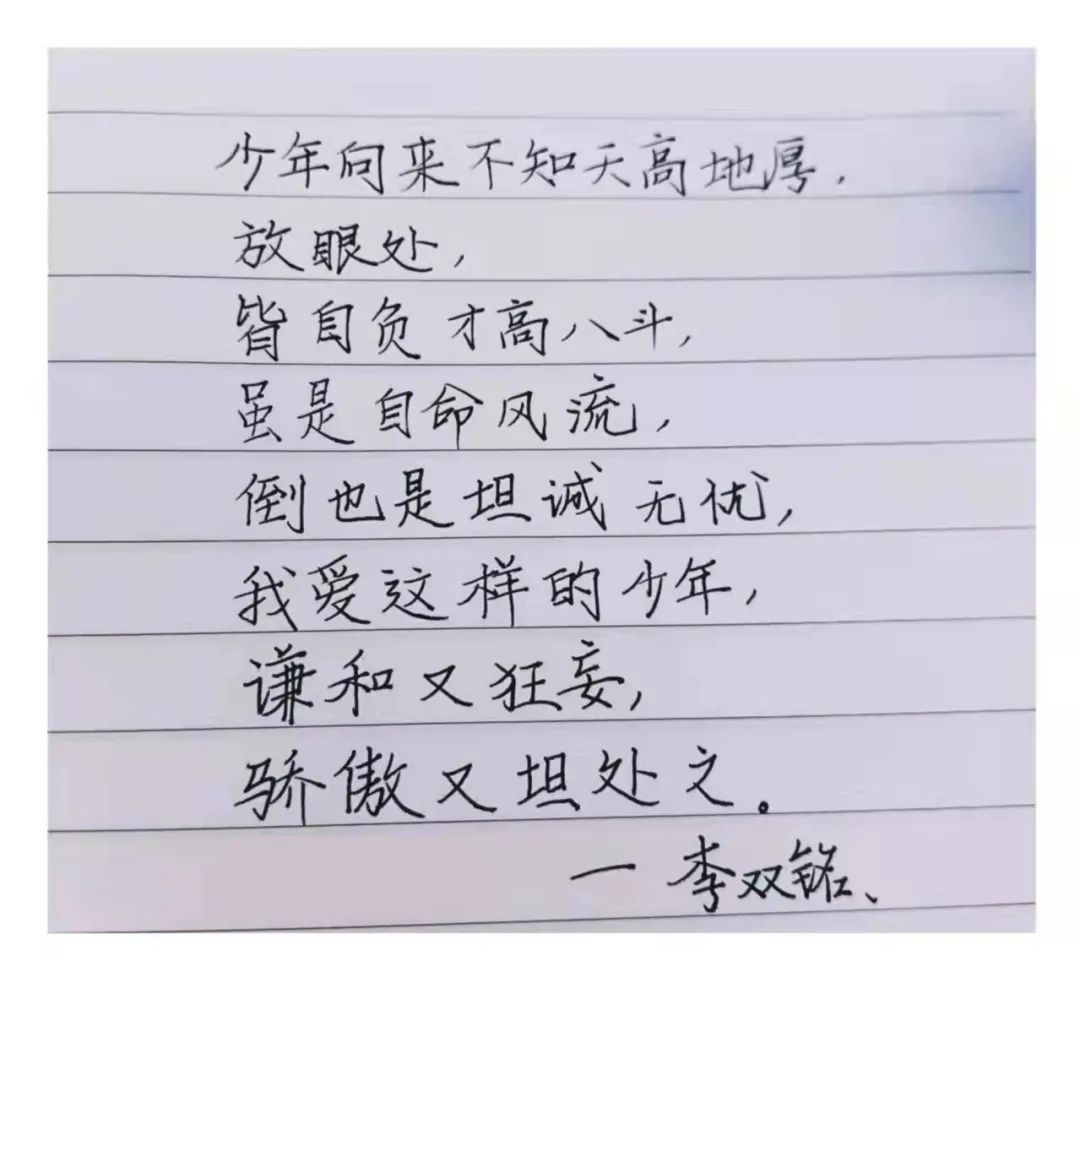 少年向来不知天高地厚.
放眼处,
皆自负才高八斗,
虽是自命风流,
倒也是坦诚无忧,
我爱这样的少年,
谦和又狂妄,
骄傲又坦处之。
一 李双铭、